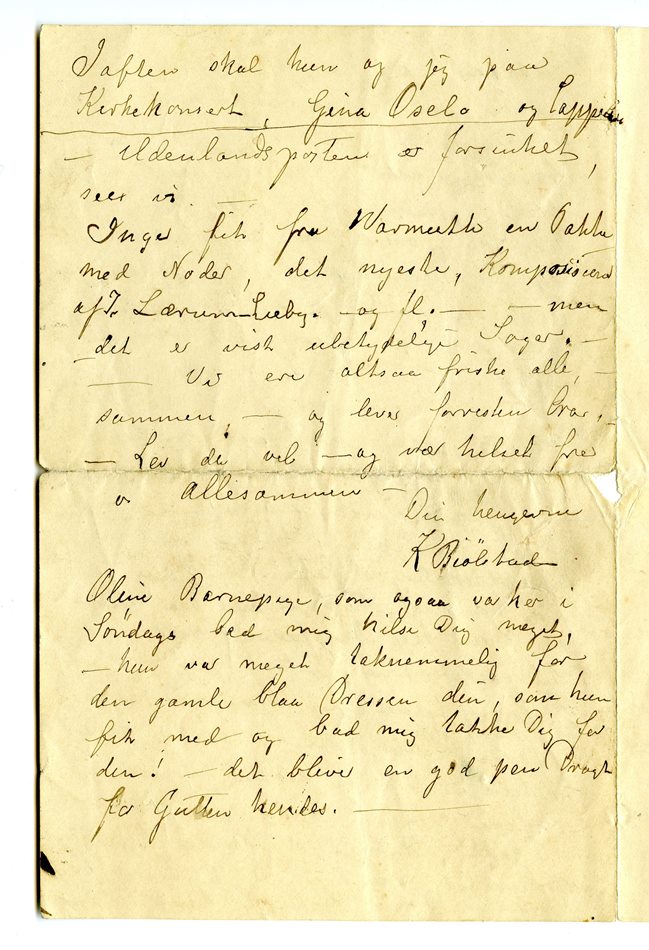 Iaften skal hun og jeg paa
Kirkekonsert, Gina Oselo og Cappelen
– Udenlandsposten er forsinket,
seer vi. –
Inger fik fra Warmuth en Pakke
med Noder, det nyeste, Komposisioner
af I. Lærum-Liebig. – og fl. – – men
det er vist ubetydelige Sager. –
– Vi ere altsaa friske alle,
sammen, – og lever forresten bra. –
– Lev da vel – og vær hilset fra
os allesammen –
Din hengivne
K Biölstad
Oline Barnepige, som ogsaa var her i
Söndags bad mig hilse Dig meget,
– hun var meget taknemmelig for
den gamle blaa Dressen din, som hun
fik med og bad mig takke Dig for
den! – det bliver en god pen Dragt
for Gutten hendes. –